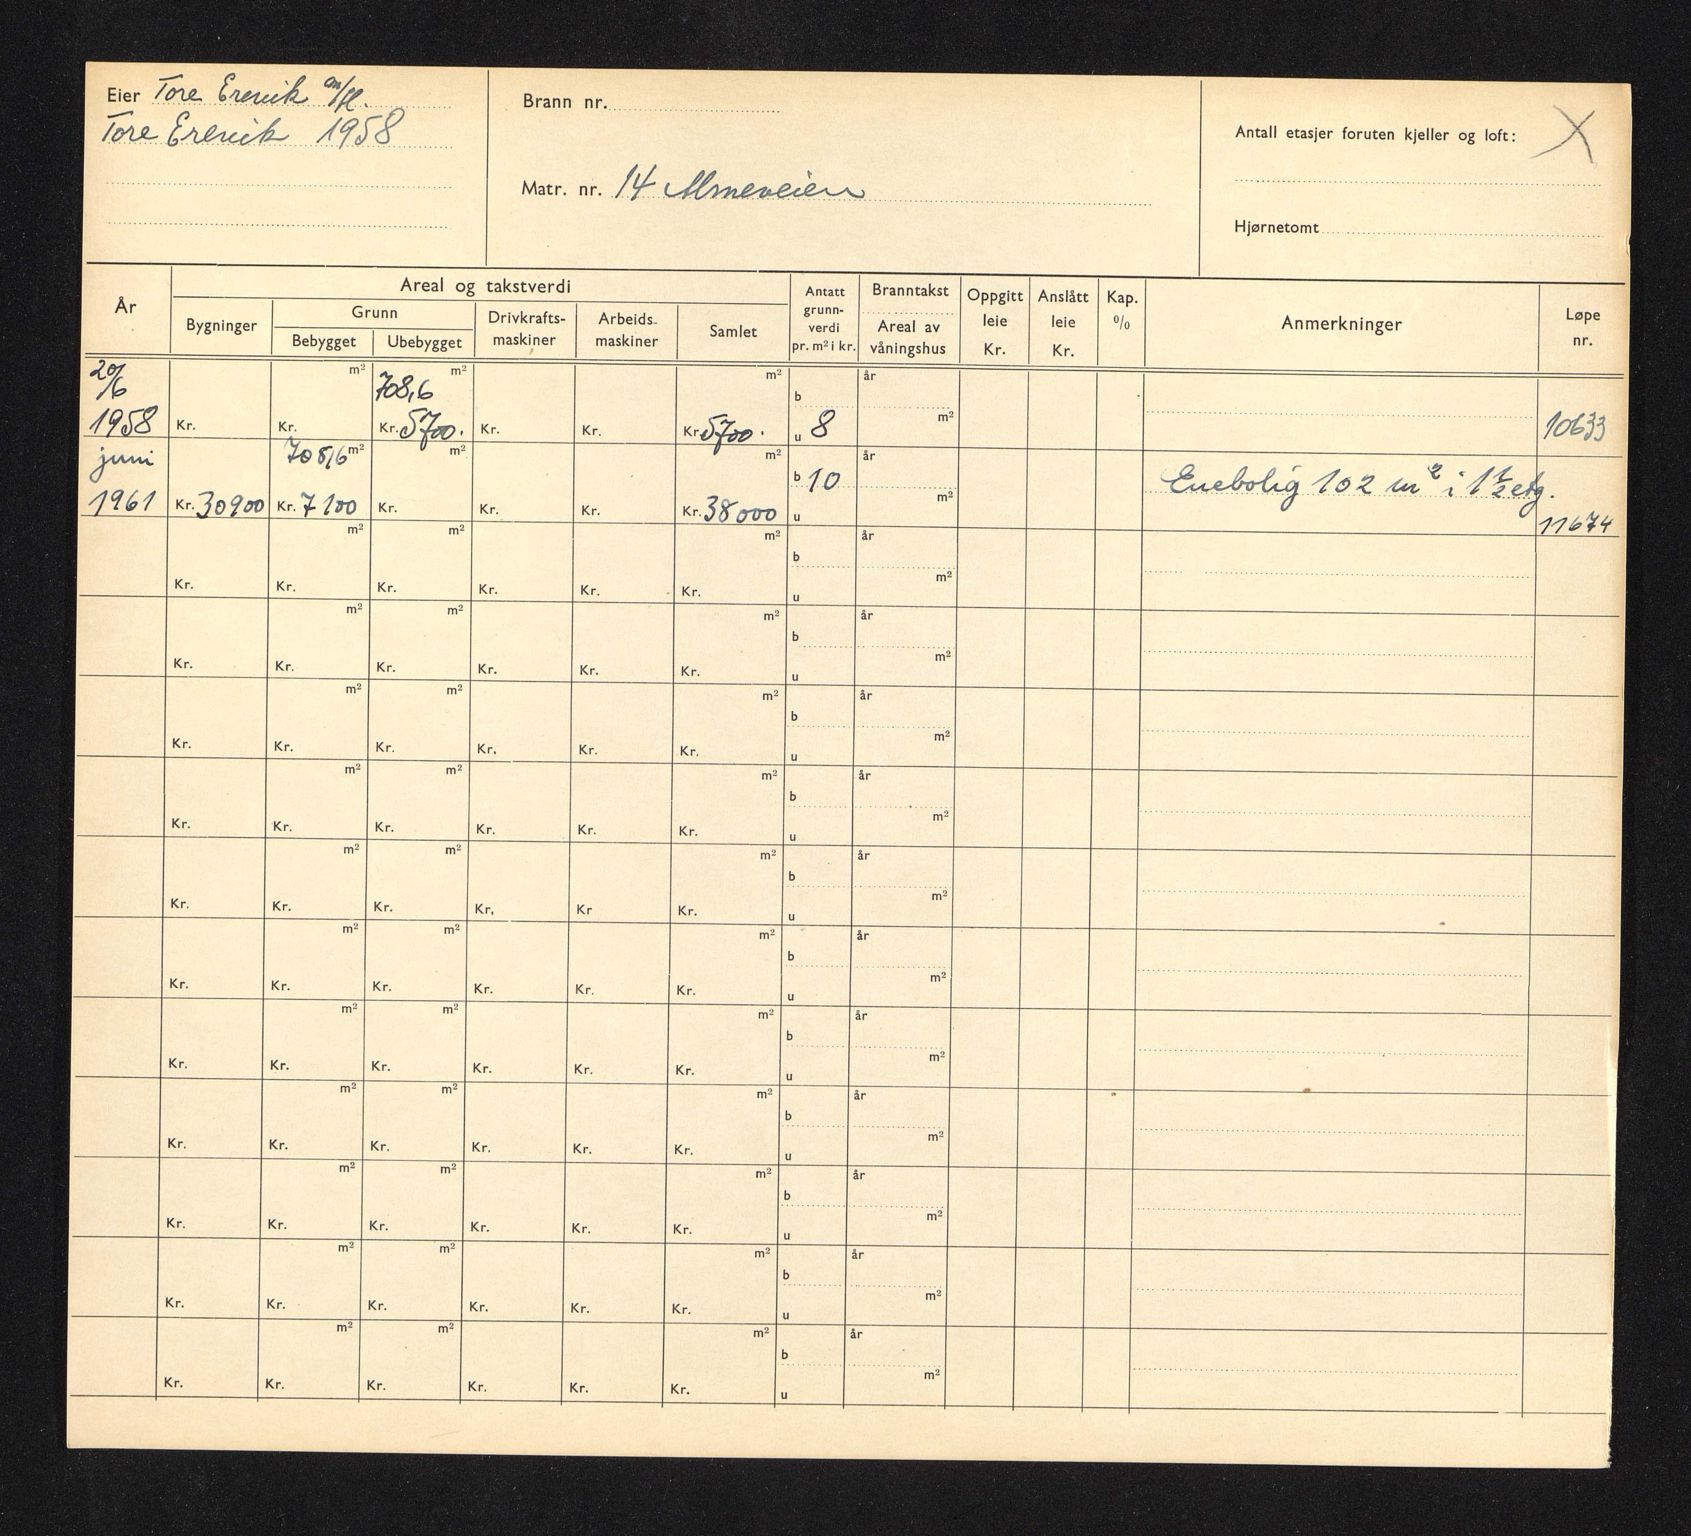 Eier Tore Erevik m/fl.
Tore Erevik 1958
Brann nr.
Matr. nr. 14 Almeveien
Antall etasjer foruten kjeller og loft: X
Hjørnetomt
År
Areal og takstverdi
Bygninger
Grunn
Bebygget Ubebygget
Drivkrafts-
maskiner
Arbeids-
maskiner
Samlet
Antatt
grunn-
verdi
pr. m² i kr.
Branntakst
Areal av
våningshus
Oppgitt
leie
Kr.
Anslått
leie
Kr.
Kap.
%
Anmerkninger
Løpe
nr.
20/6 m² 708,6 m² m² b år
1958 Kr. Kr. Kr. 5700. Kr. Kr. Kr. 5700. u 8 m² 10633
juni 708,6 m² m² m² b 10 år Enebolig 102 m² i 1 1/2 etg.
1961 Kr. 30900 Kr. 7100 Kr. Kr. Kr. Kr. 38000 u m² 11674
m² m² m² b år
Kr. Kr. Kr. Kr. Kr. Kr. u m²
m² m² m² b år
Kr. Kr. Kr. Kr. Kr. Kr. u m²
m² m² m² b år
Kr. Kr. Kr. Kr. Kr. Kr. u m²
m² m² m² b år
Kr. Kr. Kr. Kr. Kr. Kr. u m²
m² m² m² b år
Kr. Kr. Kr. Kr. Kr Kr. u m²
m² m² m² b år
Kr. Kr. Kr. Kr. Kr. Kr. u m²
m² m² m² b år
Kr. Kr. Kr. Kr. Kr. Kr. u m²
m² m² m² b år
Kr. Kr. Kr. Kr. Kr. Kr. u m²
m² m² m² b år
Kr. Kr. Kr. Kr. Kr. Kr. u m²
m² m² m² b år
Kr. Kr. Kr. Kr. Kr. Kr. u m²
m² m² m² b år
Kr. Kr. Kr. Kr. Kr. Kr. u m²